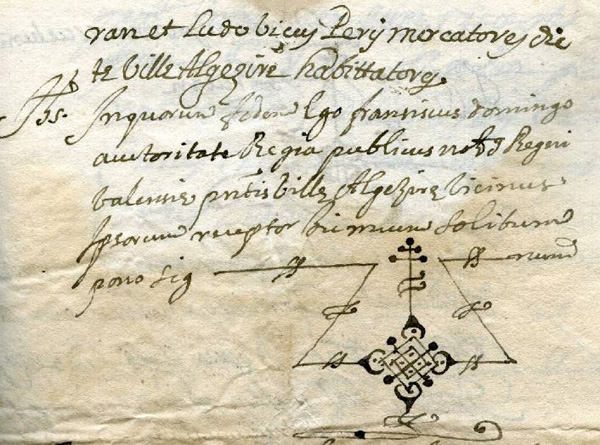 ran et Ludovicus Perij mercatores dic
te Ville Algezire habittatores
In quorum fidem Ego fransiscus domingo
auctoritate Regia publicus not Regni
Valensie pntis Ville Algezire Vicinus
Ipsorum receptor hic meum solitum
pono sig num